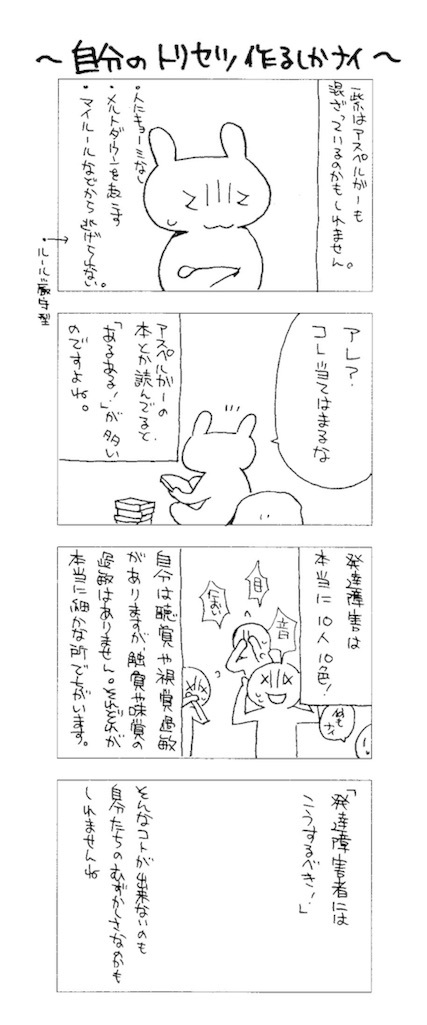 ～自分のトリセツ作るしかナイ～
一紫はアスペルガーも
混ざっているのかもしれません。
・人にキョーミなし
・メルトダウンを起こす
・マイルールなどから逃げられない。
・ルール厳守型
アレ？
コレ当てはまるな
アスペルガーの
本とか読んでると、
「あるある！」が多い
のですよね。
発達障害は
本当に10人10色！
音
目
におい
何もナイ
自分は聴覚や視覚過敏
がありますが、触覚や味覚の
過敏はありません。それぞれが
本当に細かな所でちがいます。
「発達障害者には
こうするべき！」
そんなコトが出来ないのも
自分たちのむずかしさなのかも
しれませんね